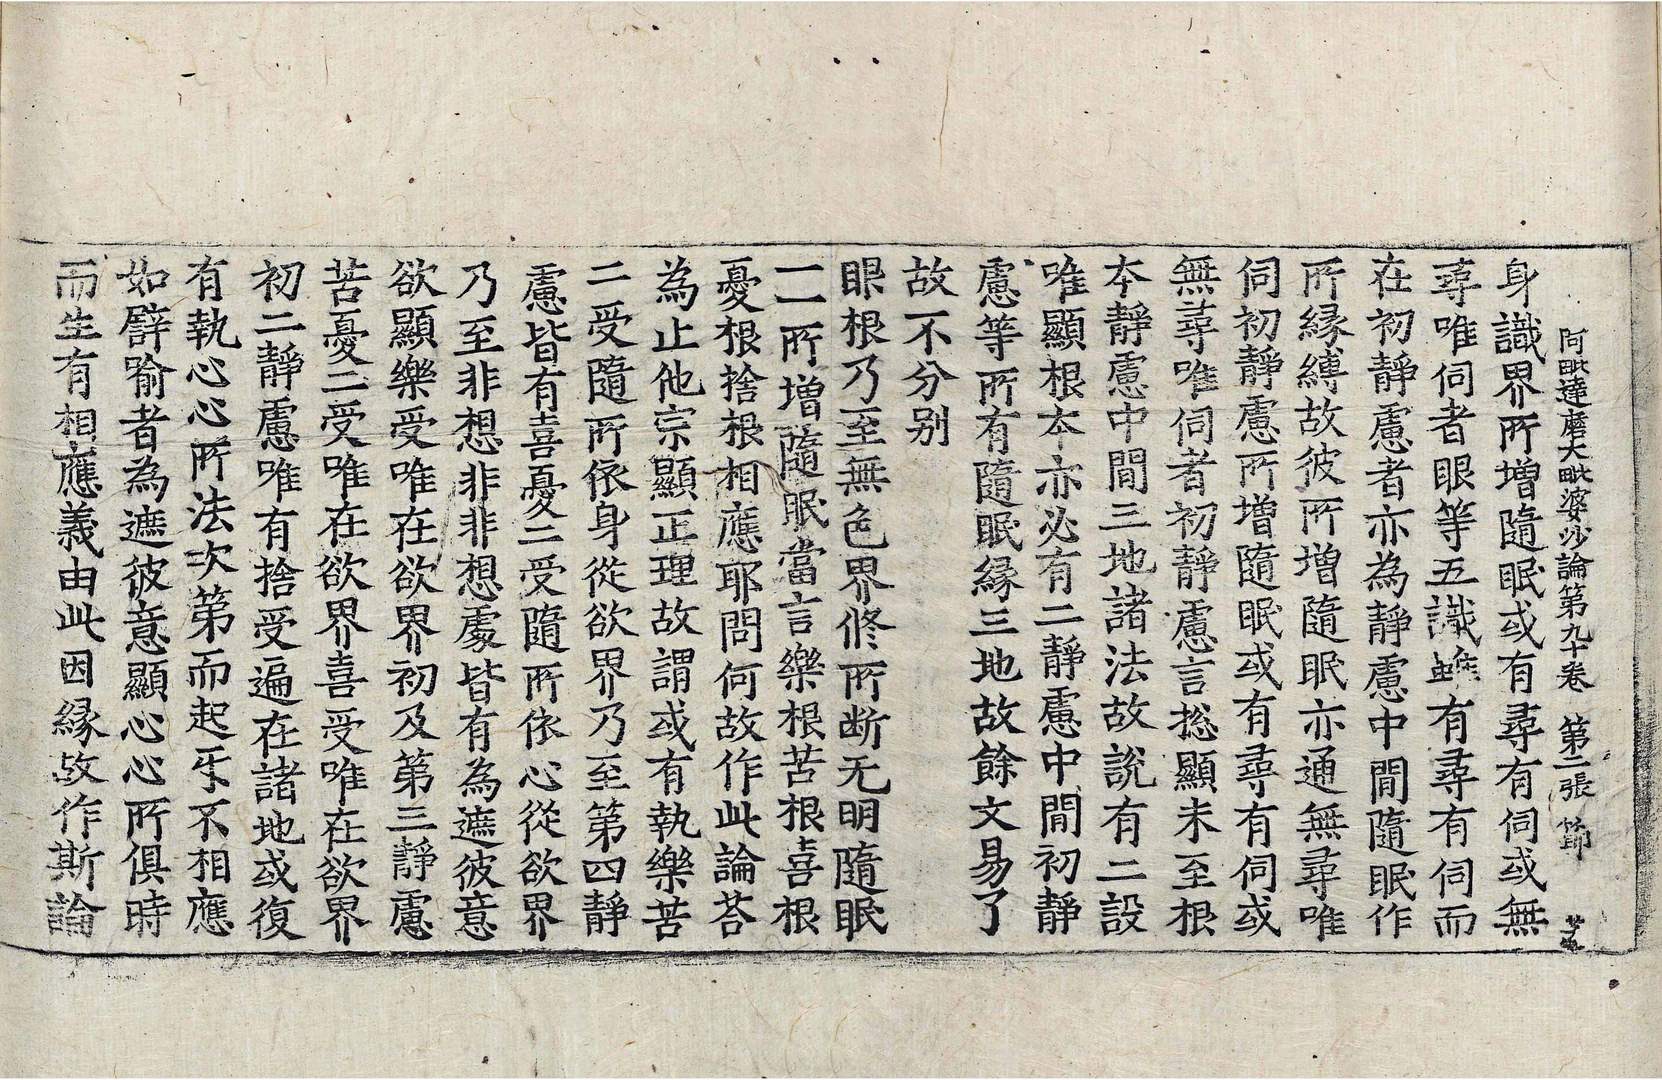 阿毗達磨大毗婆沙論第九十卷　第二張　節
身識界所增隨眠或有尋有伺或無
尋唯伺者眼等五識雖有尋有伺而
在初靜慮者亦為靜慮中間隨眠作
所緣縛故彼所增隨眠亦通無尋唯
伺初靜慮所增隨眠或有尋有伺或
無尋唯伺者初靜慮言揔顯未至根
本靜慮中間三地諸法故說有二設
唯顯根本亦必有二靜慮中間初靜
慮等所有隨眠緣三地故餘文易了
故不分别
眼根乃至無色界修所斷无明隨眠
一一所增隨眠當言樂根苦根喜根
憂根捨根相應耶問何故作此論荅
為止他宗顯正理故謂或有執樂苦
二受隨所依身從欲界乃至第四靜
慮皆有喜憂二受隨所依心從欲界
乃至非想非非想處皆有為遮彼意
欲顯樂受唯在欲界初及第三靜慮
苦憂二受唯在欲界喜受唯在欲界
初二靜慮唯有捨受遍在諸地或復
有執心心所法次第而起㸦不相應
如譬喻者為遮彼意顯心心所俱時
而生有相應義由此因緣故作斯論